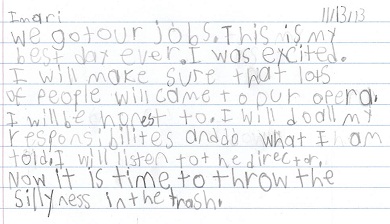 Imari 11/13/13
we got our jobs. This is my
best day ever. I was excited.
I will make sure that lots
of people will come to our opera.
I will be honest to. I will do all my
responsibilites and do what I am
told. I will listen to the director.
Now it is time to throw the
sillyness in the trash.